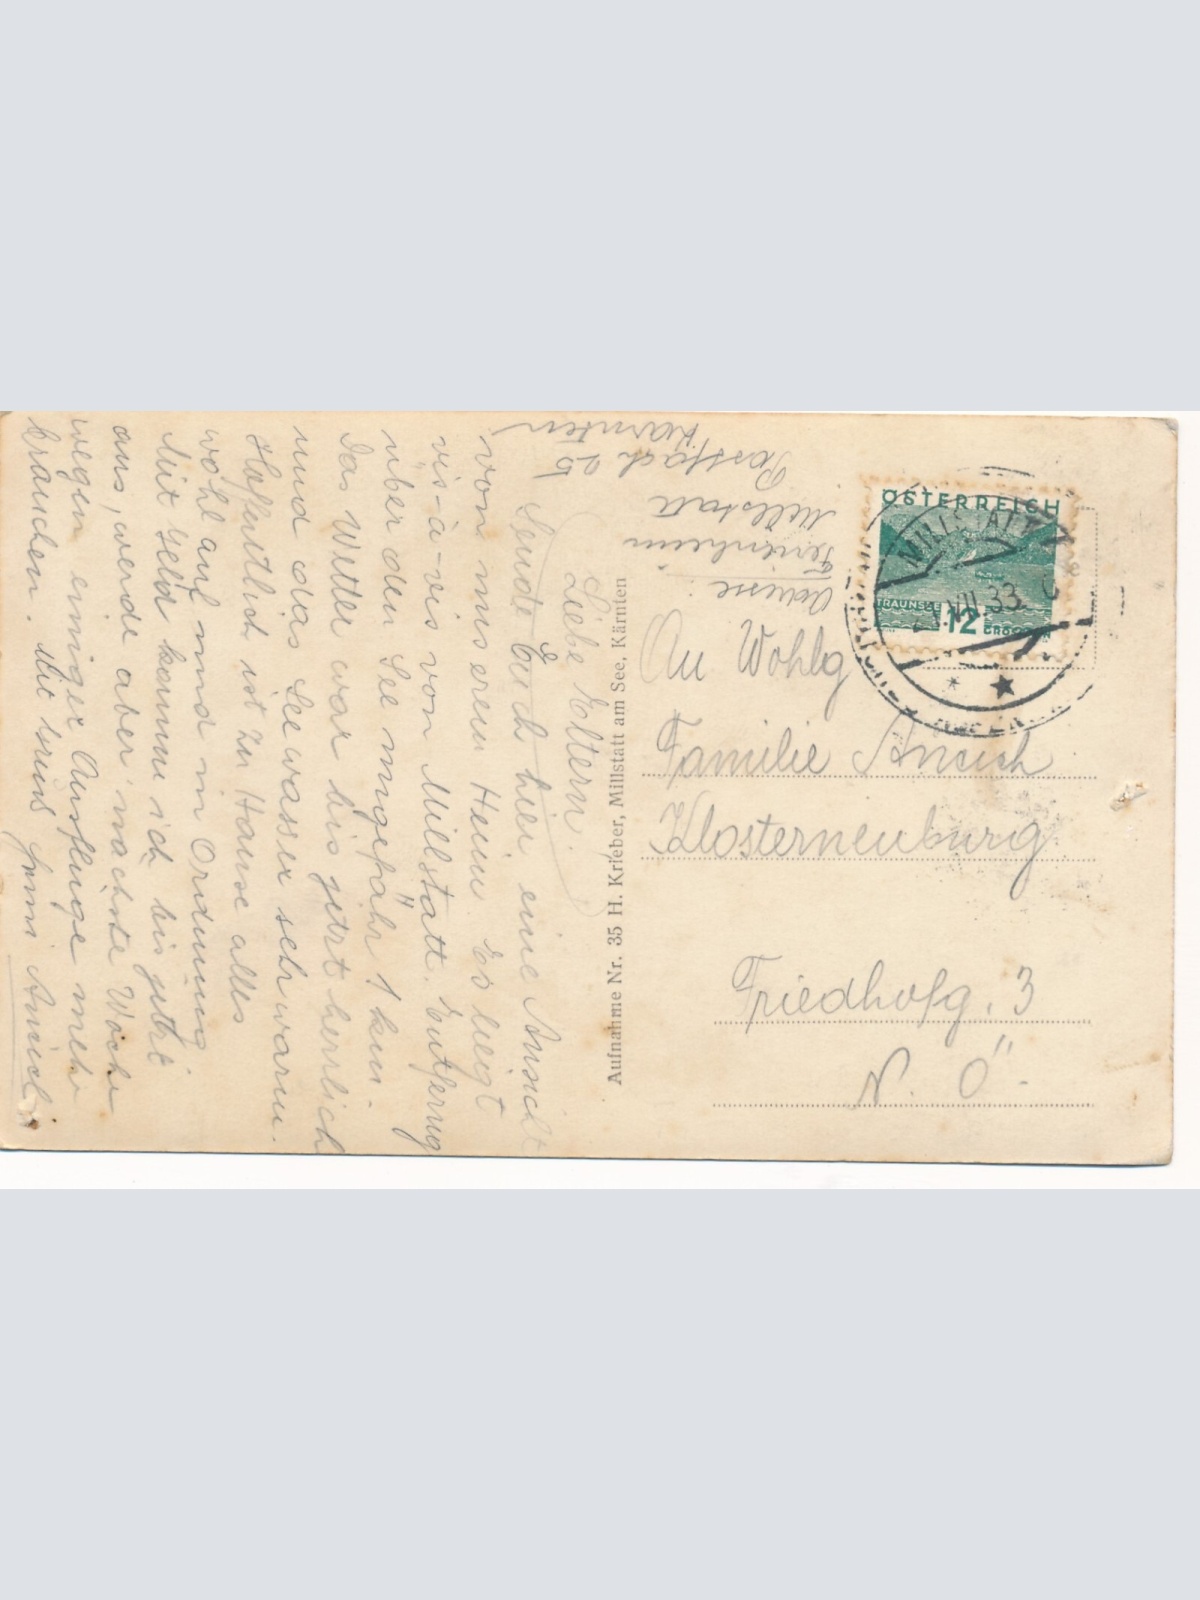 Liebe Eltern.
Sende Euch hier eine Ansicht
von unserem Heim. Es liegt
vis-à-vis von Millstatt. Entferng
über den See ungefähr 1 km.
Das Wetter war bis jetzt herrlich
und das Seewasser sehr warm.
Hoffentlich ist zu Hause alles
wohlauf und in Ordnung
Mit Geld komme ich bis jetzt
aus, werde aber nächste Woche
wegen einiger Ausflüge mehr
brauchen. Mit
Adresse:
Ferienheim
Millstatt
Postfach 25
Kärnten
Aufnahme Nr. 35 H. Krieber, Millstatt am See, Kärnten
ÖSTERREICH
TRAUNSEE
12 GROSCHEN
MILLSTATT
VII.33
An Wohlg
Familie
Klosterneuburg
Friedhofg. 3
N. Ö.